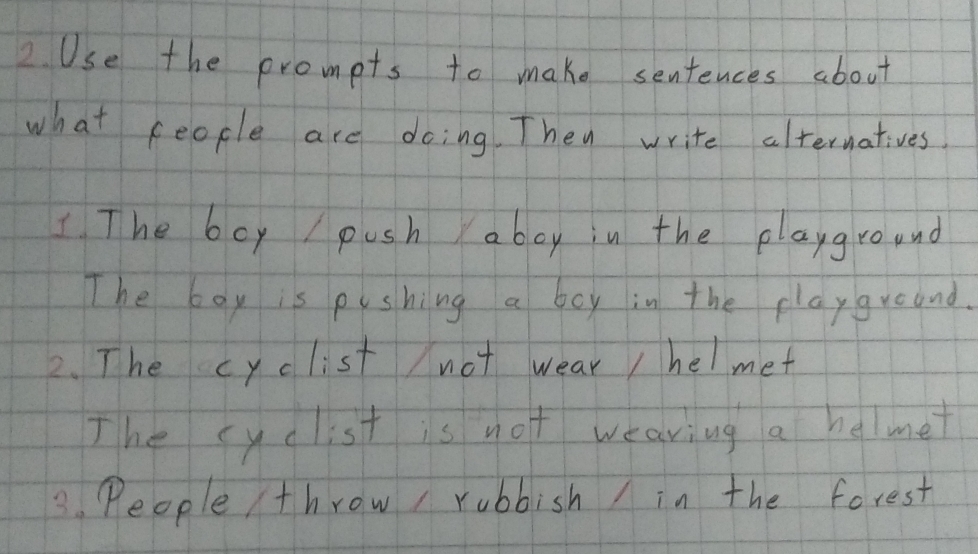 2. Use the prompts to make sentences about
what people are doing. Then write alternatives.
1. The boy / push / a boy in the playground
The boy is pushing a boy in the playground.
2. The cyclist / not wear / helmet
The cyclist is not wearing a helmet
3. People / throw / rubbish / in the forest